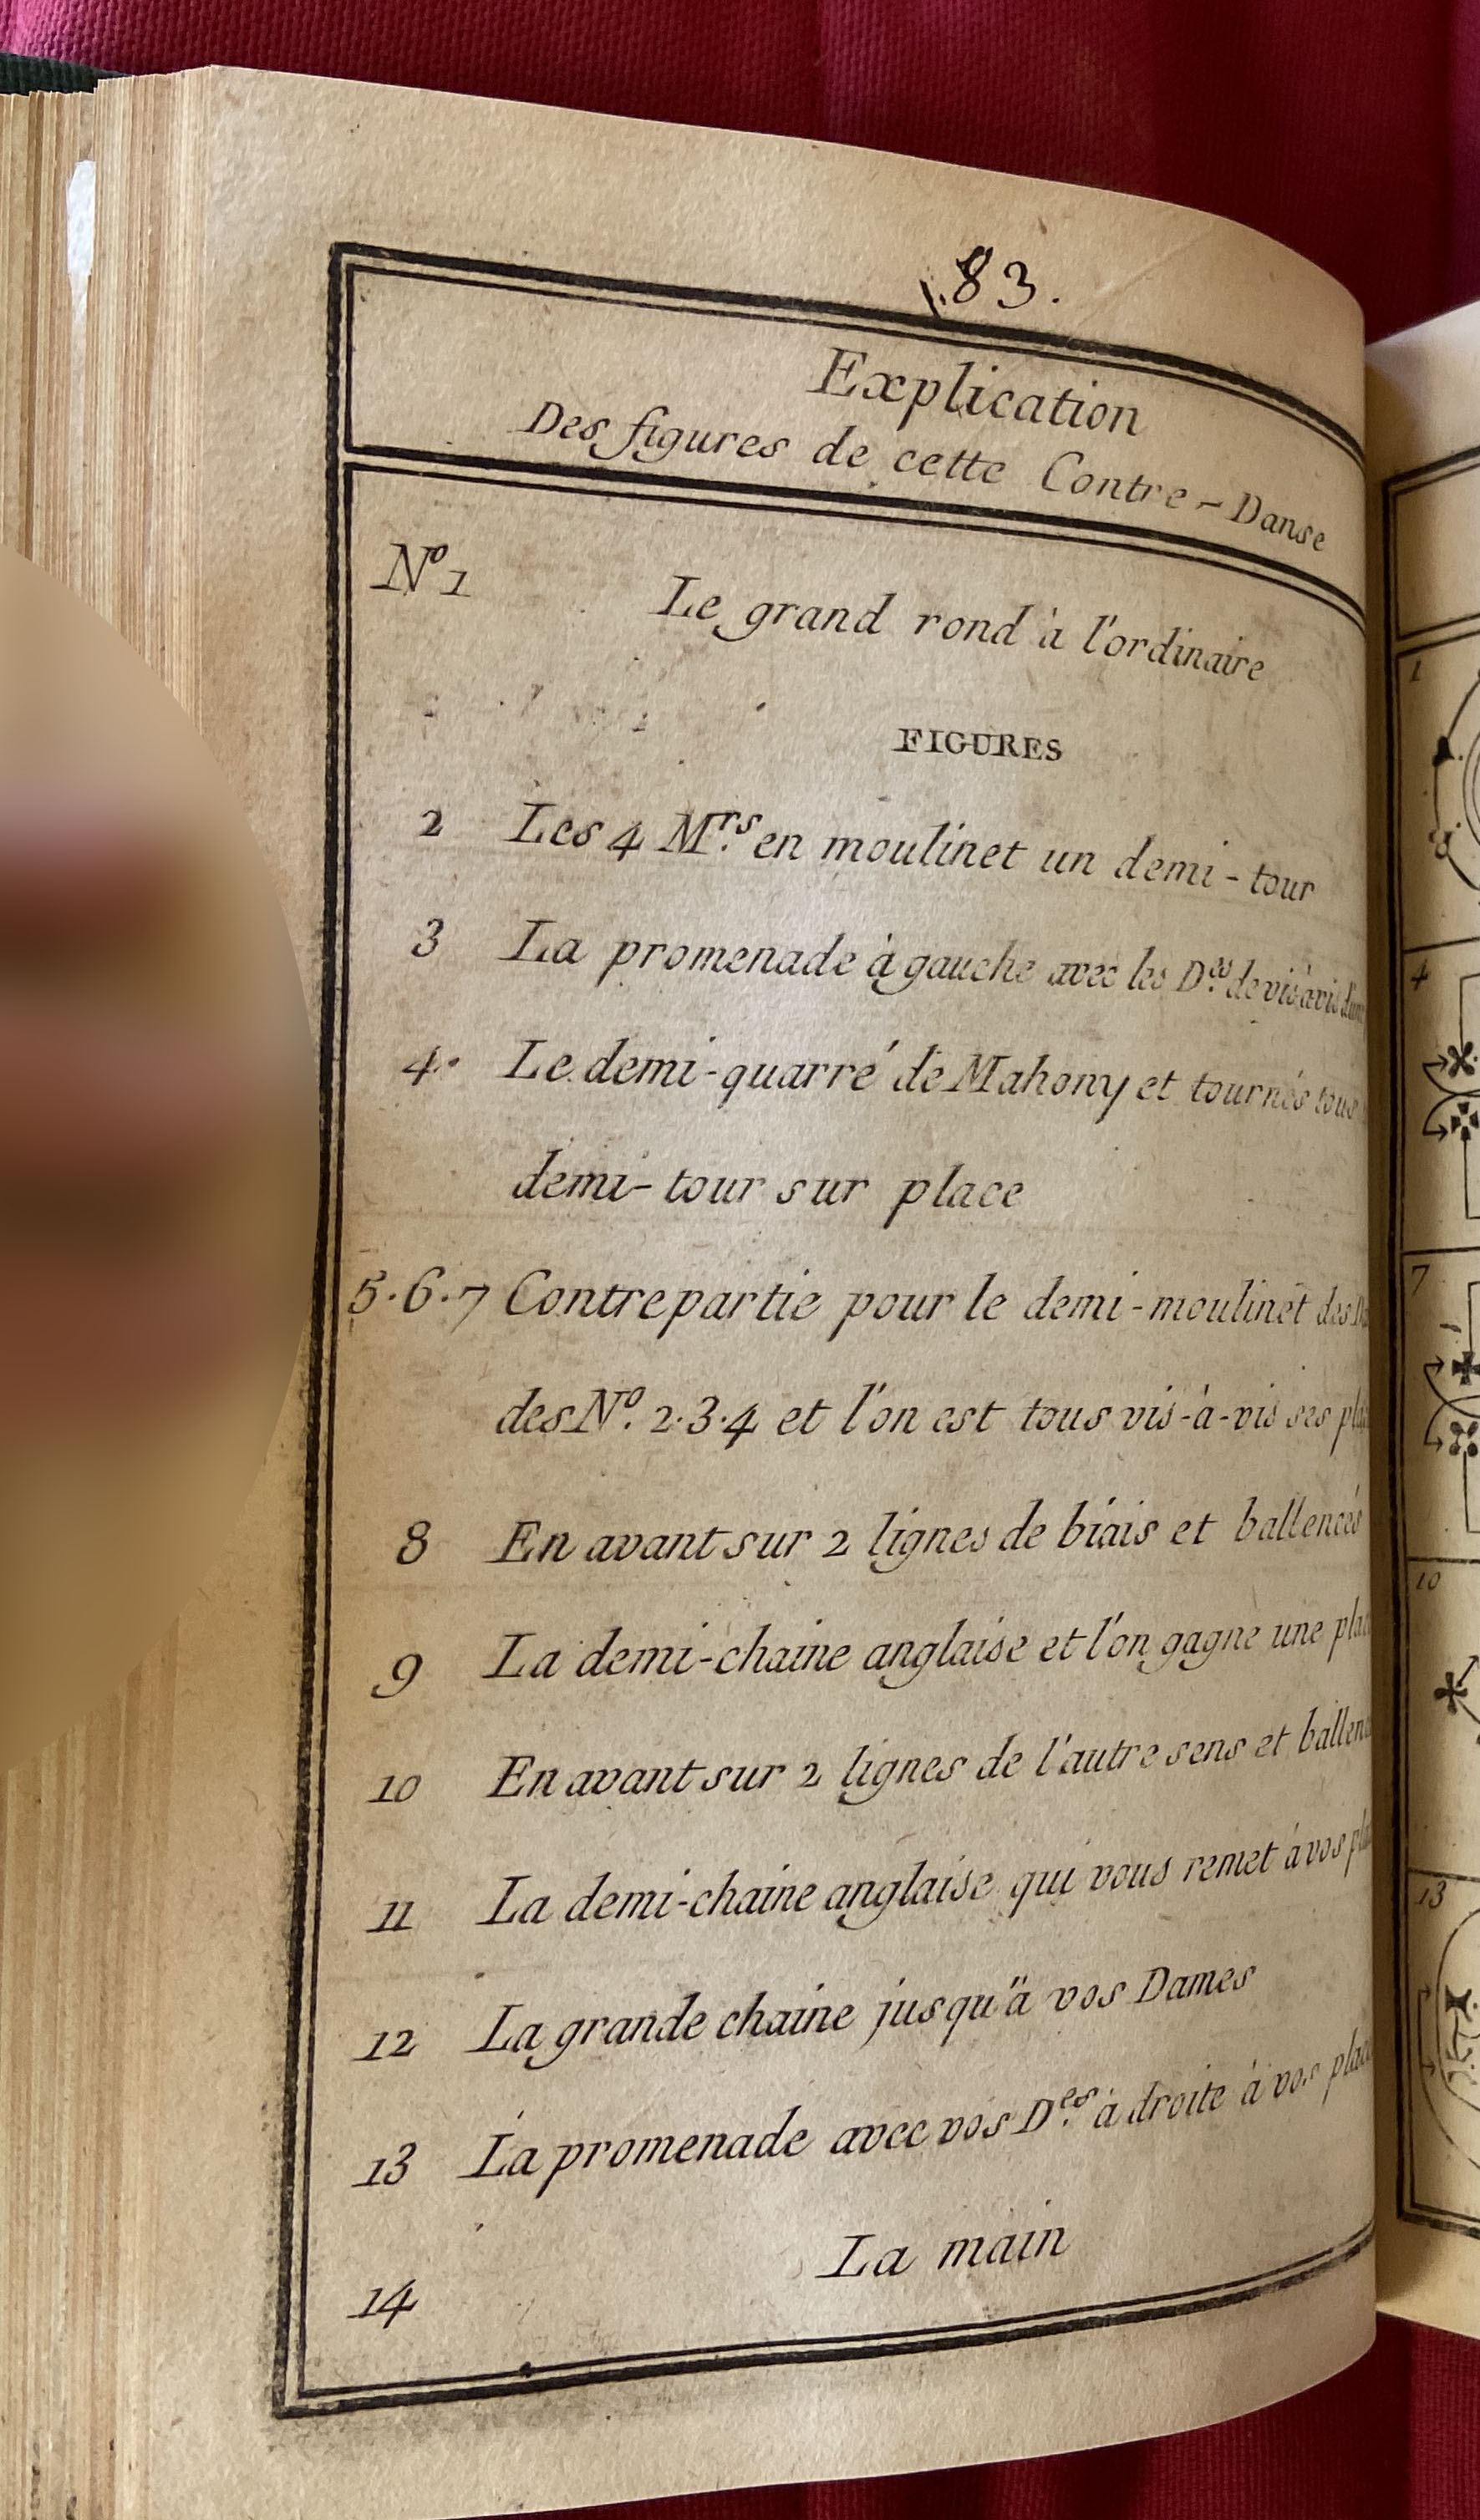 83.
Explication
Des figures de cette Contre-Danse
Nº 1 Le grand rond à l'ordinaire
FIGURES
2 Les 4 Mrs. en moulinet un demi-tour
3 La promenade à gauche avec les Des. de vis à vis
4. Le demi-quarré de Mahony et tournés tous
demi-tour sur place
5.6.7 Contrepartie pour le demi-moulinet des
des Nº. 2.3.4 et l'on est tous vis-à-vis ses
8 En avant sur 2 lignes de biais et ballencés
9 La demi-chaine anglaise et l'on gagne une
10 En avant sur 2 lignes de l'autre sens et
11 La demi-chaine anglaise qui vous remet à vos
12 La grande chaine jusqu'à vos Dames
13 La promenade avec vos Des. à droite à vos
14 La main
1
4
7
10
13